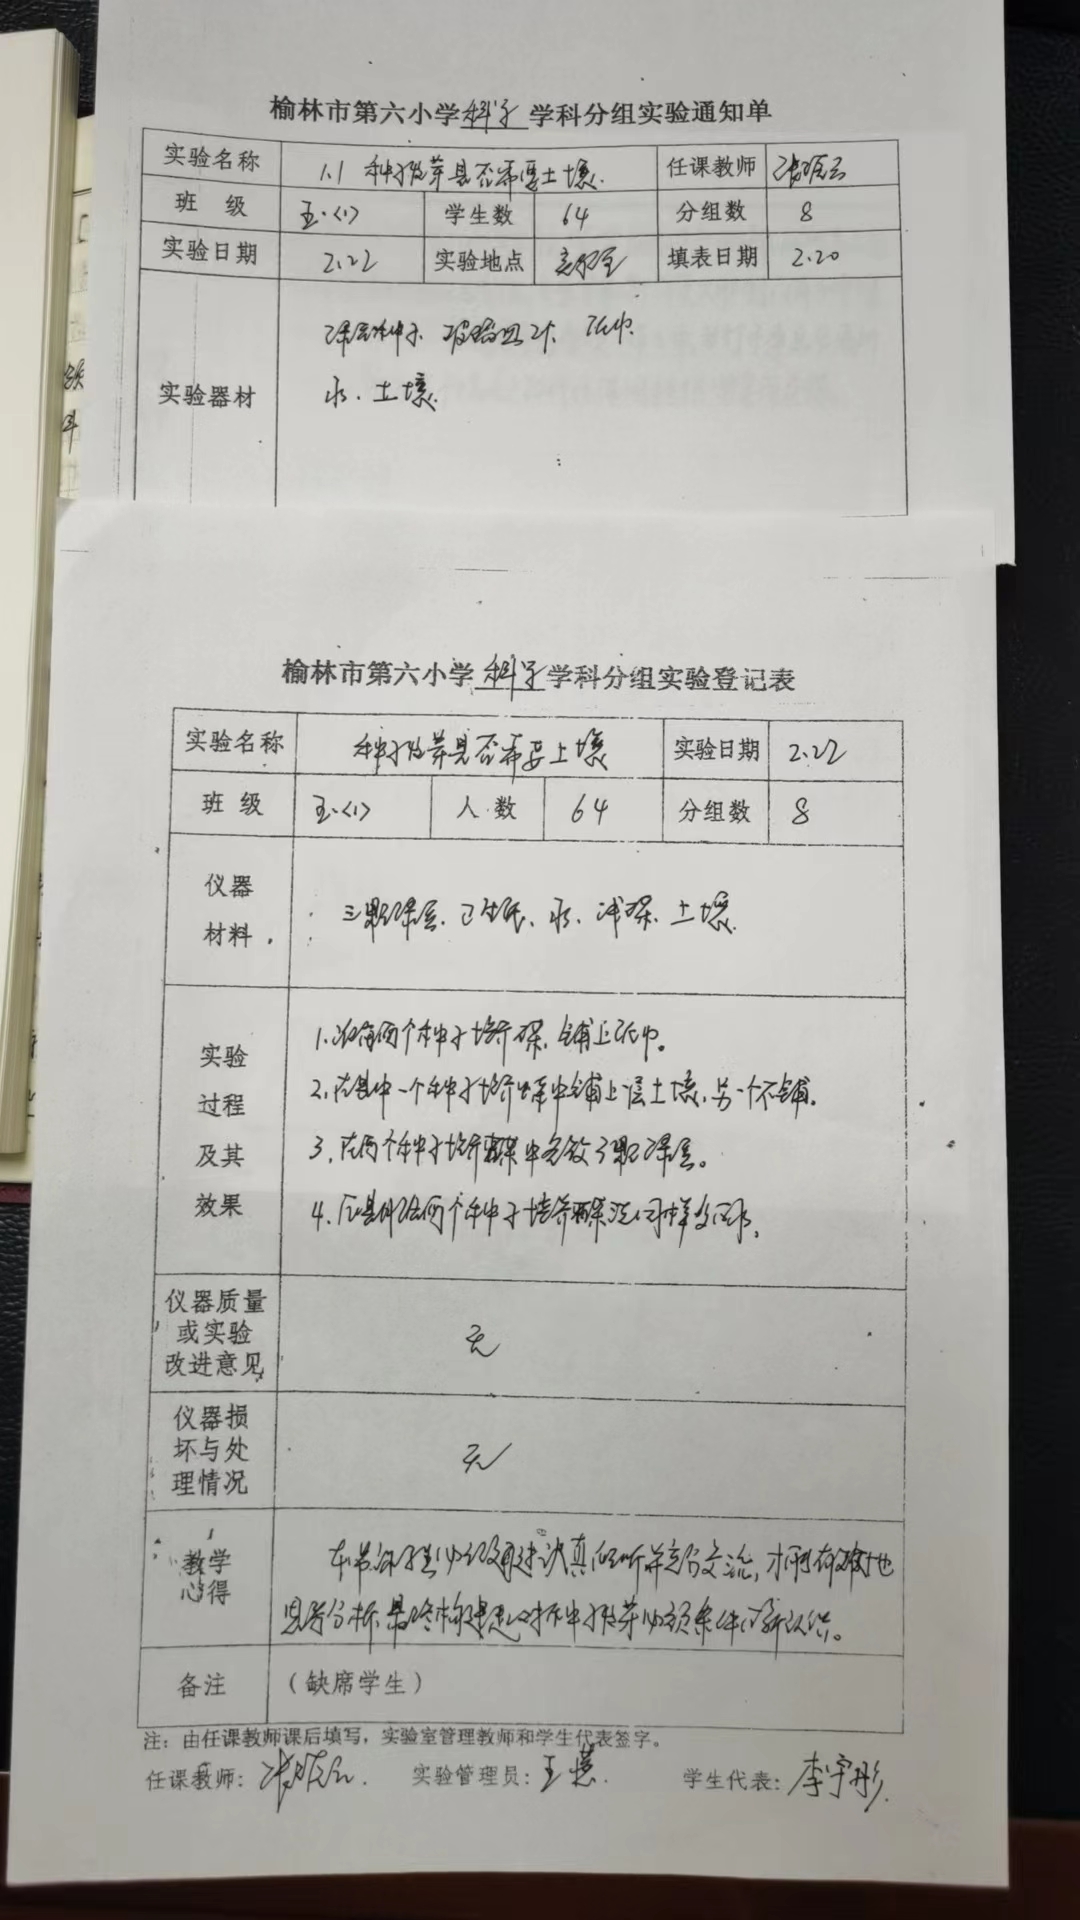 榆林市第六小学科学学科分组实验通知单
实验名称 1.1 种子发芽是否需要土壤. 任课教师
班 级 五.<1> 学生数 64 分组数 8
实验日期 2.22 实验地点 实验室 填表日期 2.20
绿豆种子、玻璃皿、纸巾
实验器材 水、土壤
榆林市第六小学科学学科分组实验登记表
实验名称 种子发芽是否需要土壤 实验日期 2.22
班 级 五.<1> 人 数 64 分组数 8
仪器
材料
三颗绿豆、卫生纸、水、土壤
实验
过程
及其
效果
1.准备两个种子培养器,铺上纸巾。
2.在其中一个种子培养器中铺上一层土壤,另一个不铺。
3.在两个种子培养器中各放3颗绿豆。
4.给两个种子培养器浇同样多的水。
仪器质量
或实验
改进意见
无
仪器损
坏与处
理情况
无
教学
心得
本节课学生必须通过认真倾听并充分交流,才能有效地
思考分析,最终种子发芽必须条件的新认识。
备注 (缺席学生)
注:由任课教师课后填写,实验室管理教师和学生代表签字。
任课教师: 实验管理员:王慧. 学生代表:李宇彤